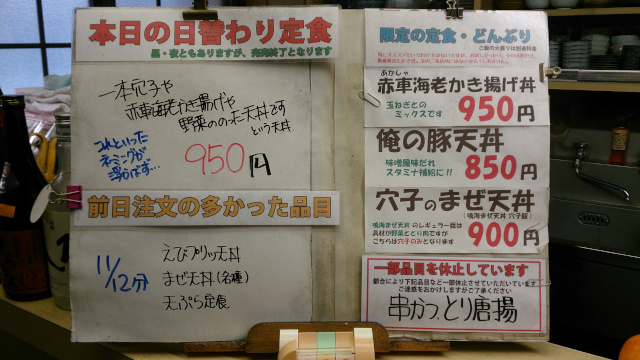 本日の日替わり定食
昼・夜ともありますが、完売終了となります
一本穴子や
赤車海老かき揚げや
野菜ののった天丼です
という天丼
これといった
ネーミングが
浮かばず…
950円
前日注文の多かった品目
11/12分
えびプリッツ天丼
まぜ天丼(各種)
天ぷら定食
限定の定食・どんぶり
ご飯の大盛りは別途料金
あかしゃ
赤車海老かき揚げ丼
玉ねぎとの
ミックスです
950円
俺の豚天丼
味噌風味だれ
スタミナ補給に!!
850円
穴子のまぜ天丼
(鳴海まぜ天丼 穴子版)
鳴海まぜ天丼 のレギュラー版は
具材が野菜ととり肉ですが
こちらは穴子のみとなります
900円
一部品目を休止しています
都合により下記品目など一部休止させていただいています
ご迷惑をおかけしますがご了承ください
串かつ、とり唐揚